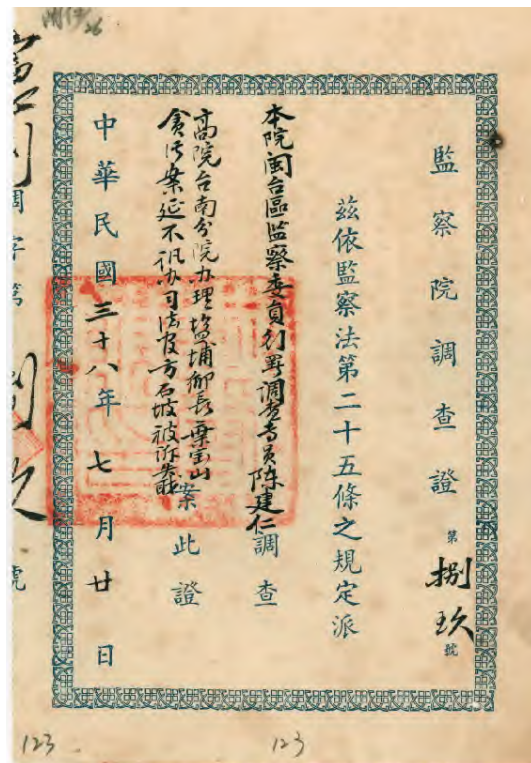 監察院調查證 第捌玖號
茲依監察法第二十五條之規定派
本院閩台區監察委員行署調查專員陳建仁調查
高院台南分院办理塩埔鄉長葉宝山
貪污案延不訊办司法及方石坡被訴案
案此證
中華民國三十八年七月廿日
調字第
號
26
123
123